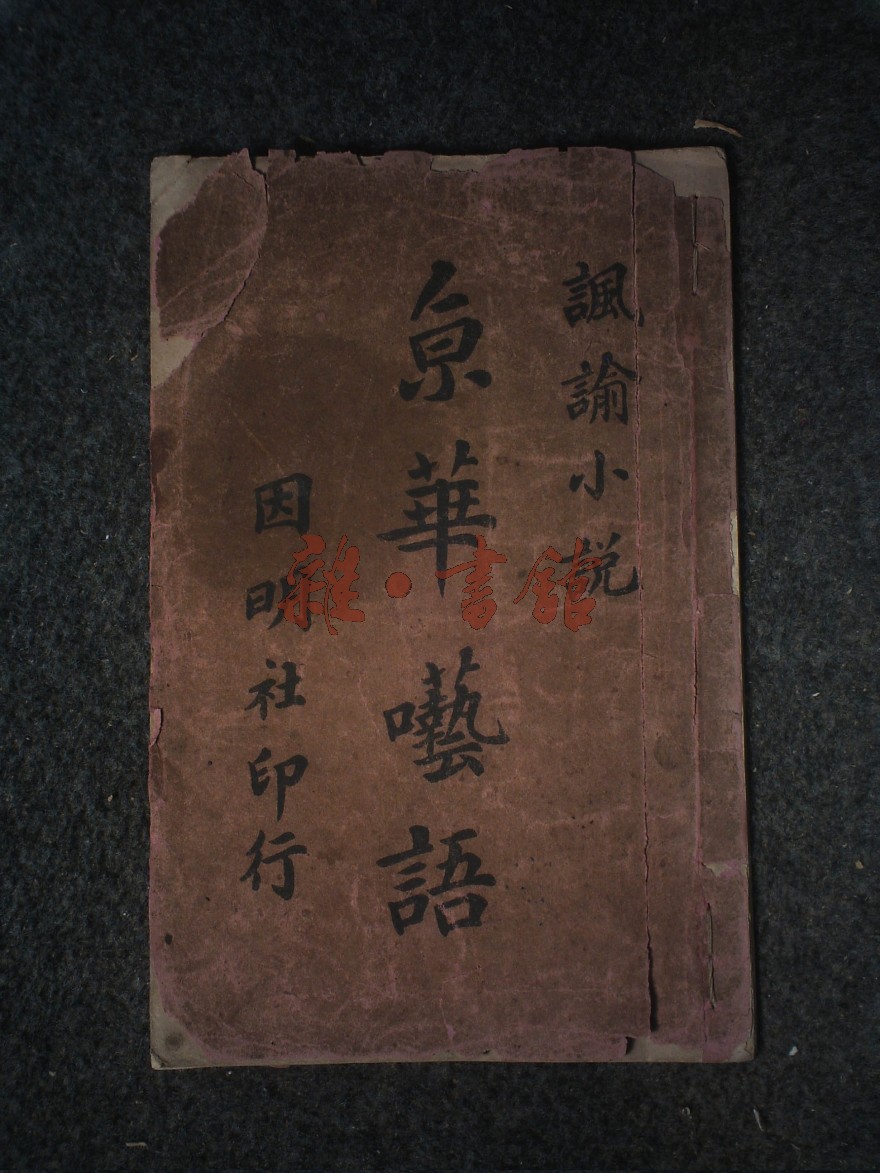 諷諭小說
京華囈語
因明社印行
雜·書館